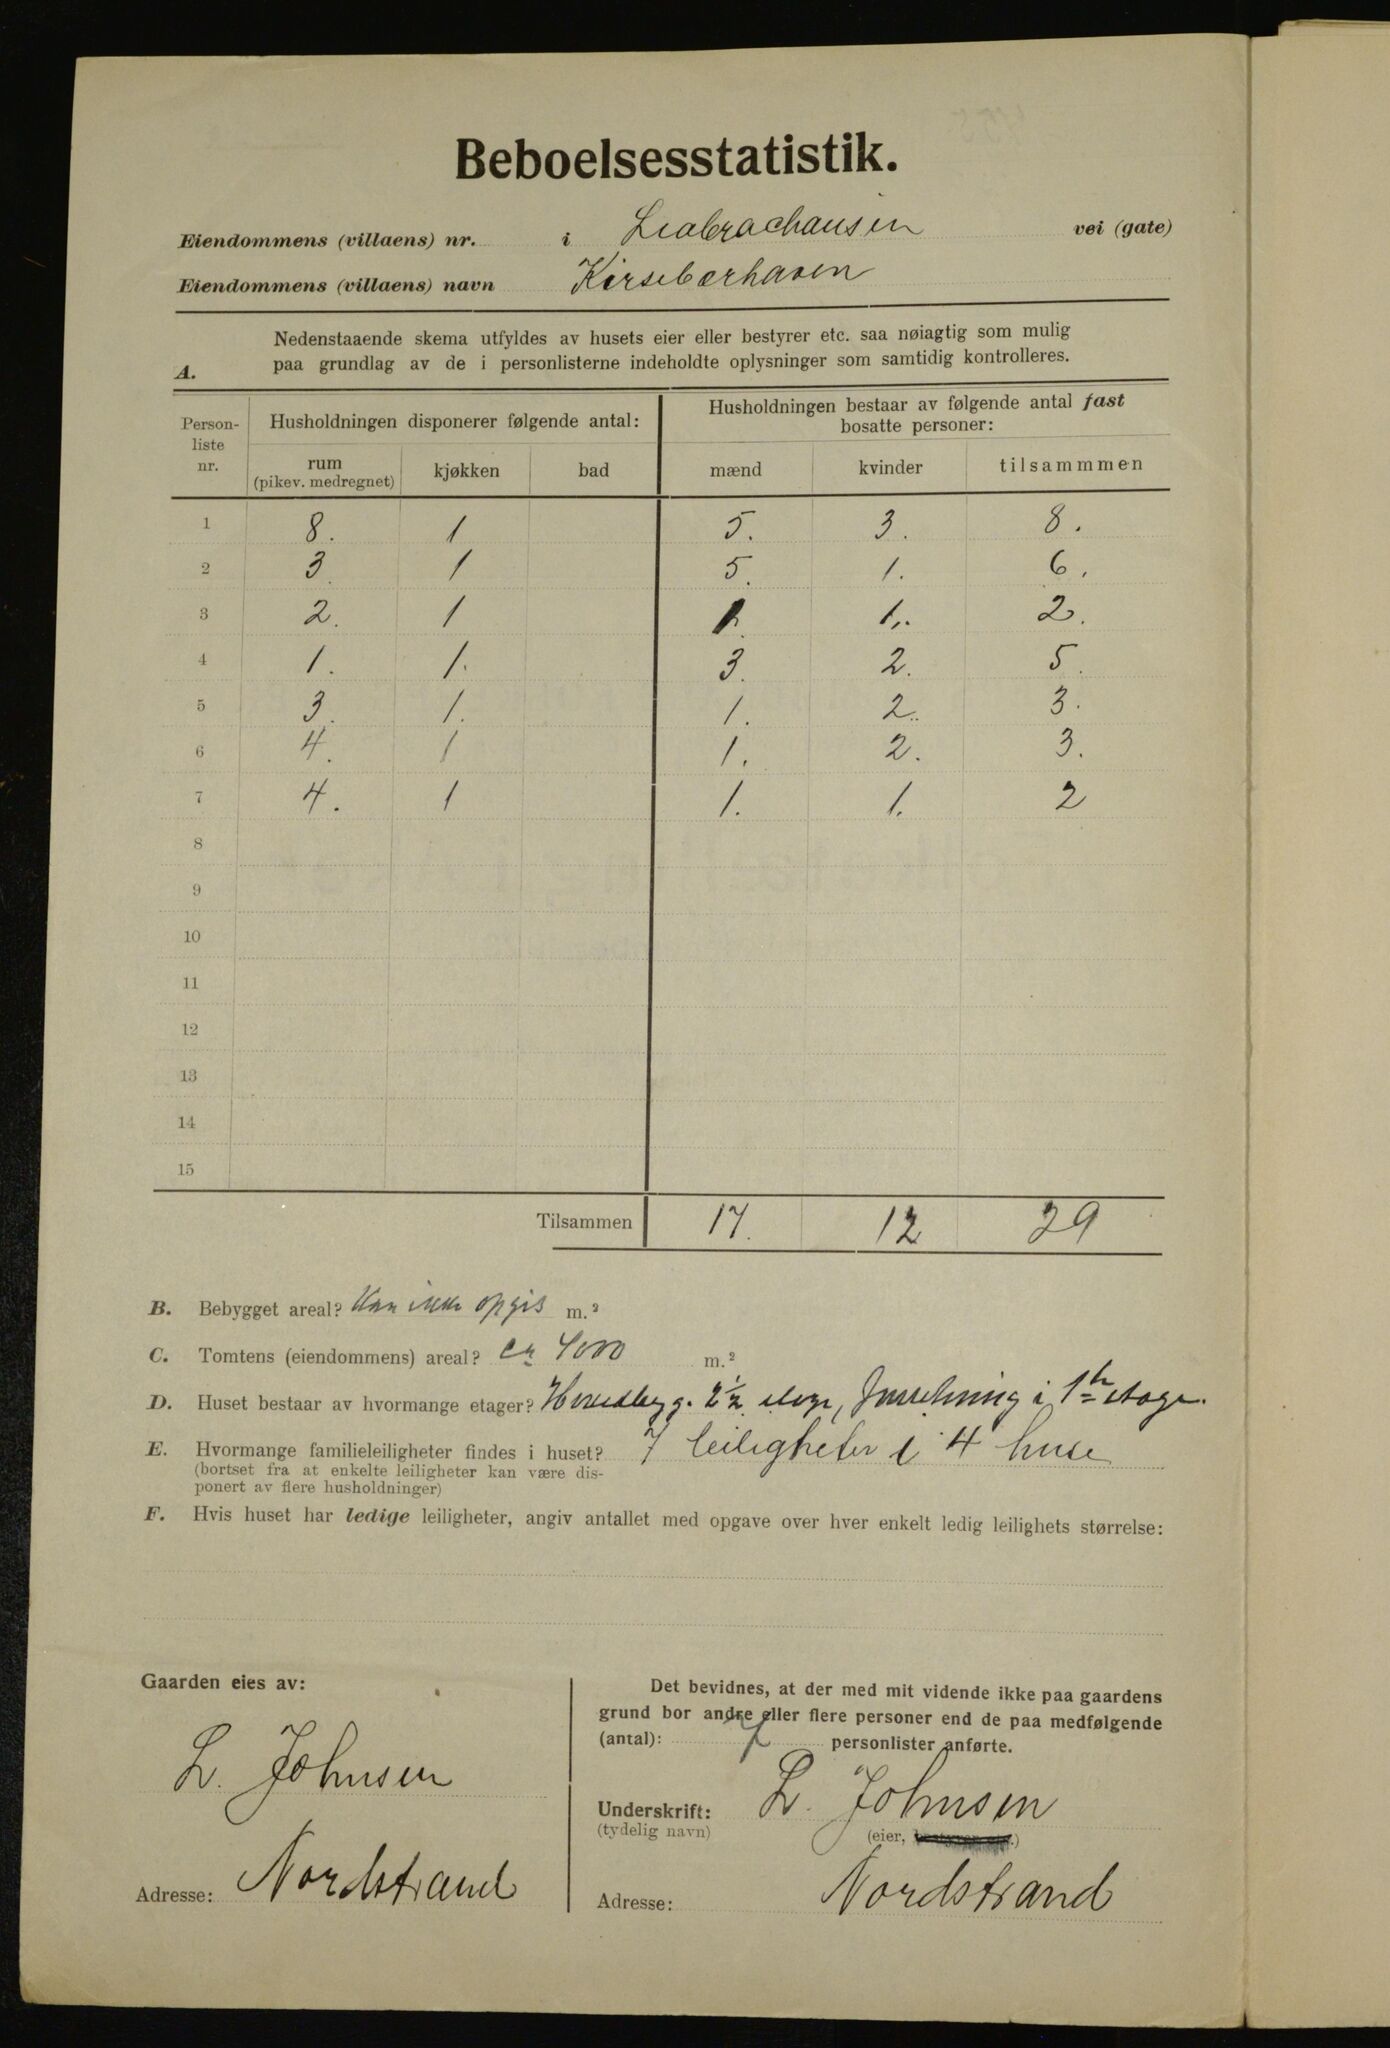 Beboelsesstatistik.
Eiendommens (villaens) nr. i Liabrochauséen vei (gate)
Eiendommens (villaens) navn Kirsebærhaven
A. Nedenstaaende skema utfyldes av husets eier eller bestyrer etc. saa nøiagtig som mulig
paa grundlag av de i personlisterne indeholdte oplysninger som samtidig kontrolleres.
Person-liste nr. Husholdningen disponerer følgende antal: Husholdningen bestaar av følgende antal fast bosatte personer:
rum (pikev. medregnet) kjøkken bad mænd kvinder tilsammmen
1 8. 1 5. 3. 8.
2 3. 1 5. 1. 6.
3 2. 1 1. 1. 2.
4 1. 1. 3. 2. 5.
5 3. 1. 1. 2. 3.
6 4. 1 1. 2. 3.
7 4. 1 1. 1. 2
8
9
10
11
12
13
14
15
Tilsammen 17. 12 29
B. Bebygget areal? Kan ikke opgis m.²
C. Tomtens (eiendommens) areal? ca 4000 m.²
D. Huset bestaar av hvormange etager? Hovedbyg. 2½ etage, i 1ste etage.
E. Hvormange familieleiligheter findes i huset? 7 leiligheter i 4 huse
(bortset fra at enkelte leiligheter kan være dis-
ponert av flere husholdninger)
F. Hvis huset har ledige leiligheter, angiv antallet med opgave over hver enkelt ledig leilighets størrelse:
Gaarden eies av:
L. Johnsen
Adresse: Nordstrand
Det bevidnes, at der med mit vidende ikke paa gaardens
grund bor andre eller flere personer end de paa medfølgende
(antal): 7 personlister anførte.
Underskrift: L. Johnsen
(tydelig navn) (eier, bestyrer etc.)
Adresse: Nordstrand